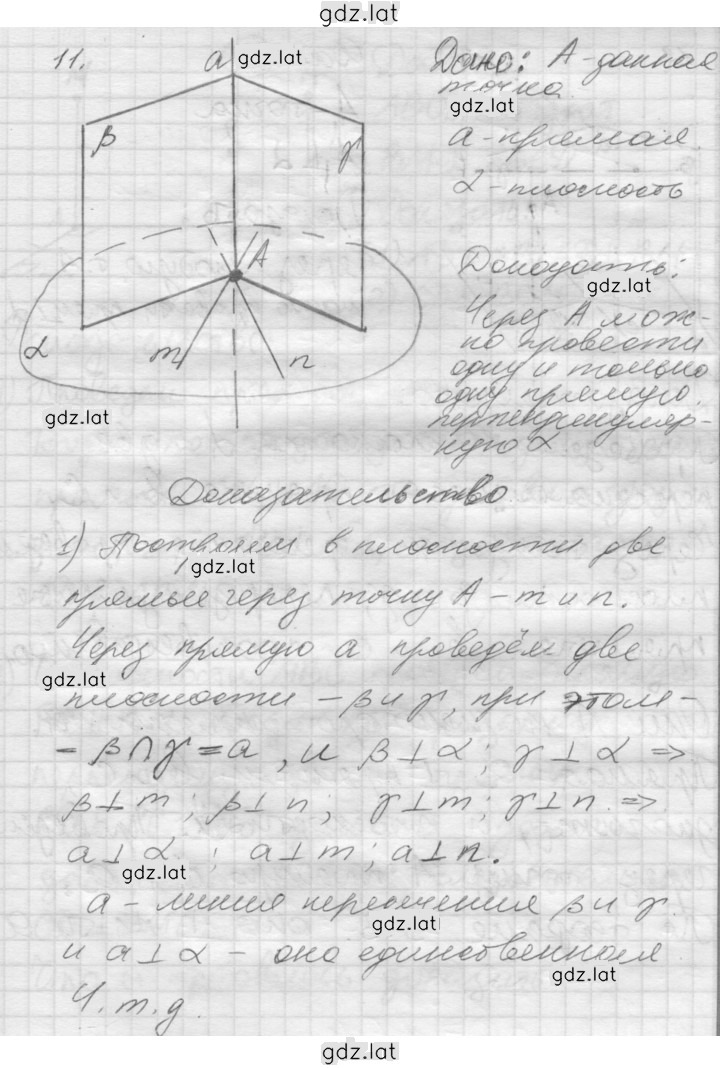 gdz.lat
11.
a gdz.lat
Дано: А - данная
точка
gdz.lat
a - прямая.
α - плоскость
β
γ
A
α
m
n
gdz.lat
Доказать:
gdz.lat
Через А мож-
но провести
одну и только
одну прямую,
перпендикуляр-
ную α
Доказательство
1) Построим в плоскости две
gdz.lat
прямые через точку А - m и n.
Через прямую a проведём две
gdz.lat
плоскости - β и γ, при этом -
- β∩γ = a, и β⊥α; γ⊥α =>
β⊥m; β⊥n; γ⊥m; γ⊥n. =>
a⊥α; a⊥m; a⊥n.
gdz.lat
a - линия пересечения β и γ
gdz.lat
и a⊥α - она единственная
gdz.lat
Ч.т.д.
gdz.lat